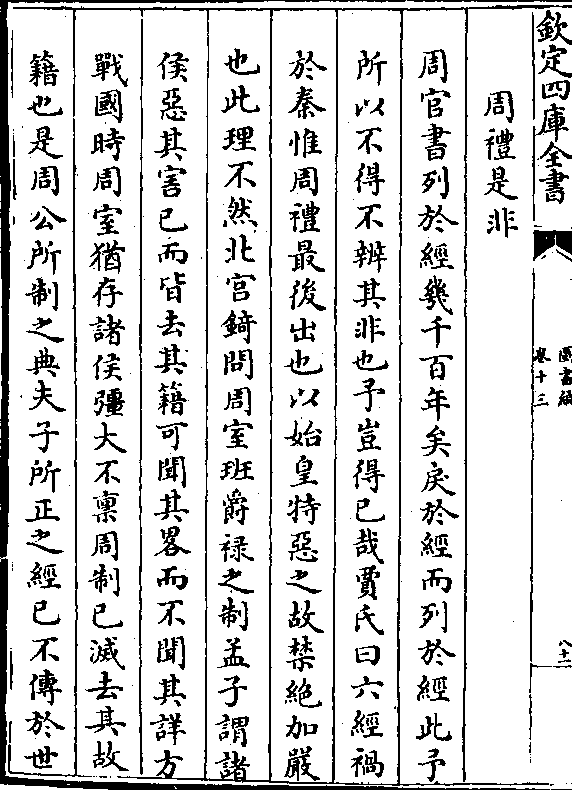 欽定四庫全書
圖書編
卷十三
八十二
周禮是非
周官書列於經幾千百年矣戾於經而列於經此予
所以不得不辨其非也予豈得已哉賈氏曰六經禍
於秦惟周禮最後出也以始皇特惡之故禁絶加嚴
也此理不然北宮錡問周室班爵祿之制孟子謂諸
侯惡其害已而皆去其籍可聞其畧而不聞其詳方
戰國時周室猶存諸侯彊大不禀周制已滅去其故
籍也是周公所制之典夫子所正之經已不傳於世